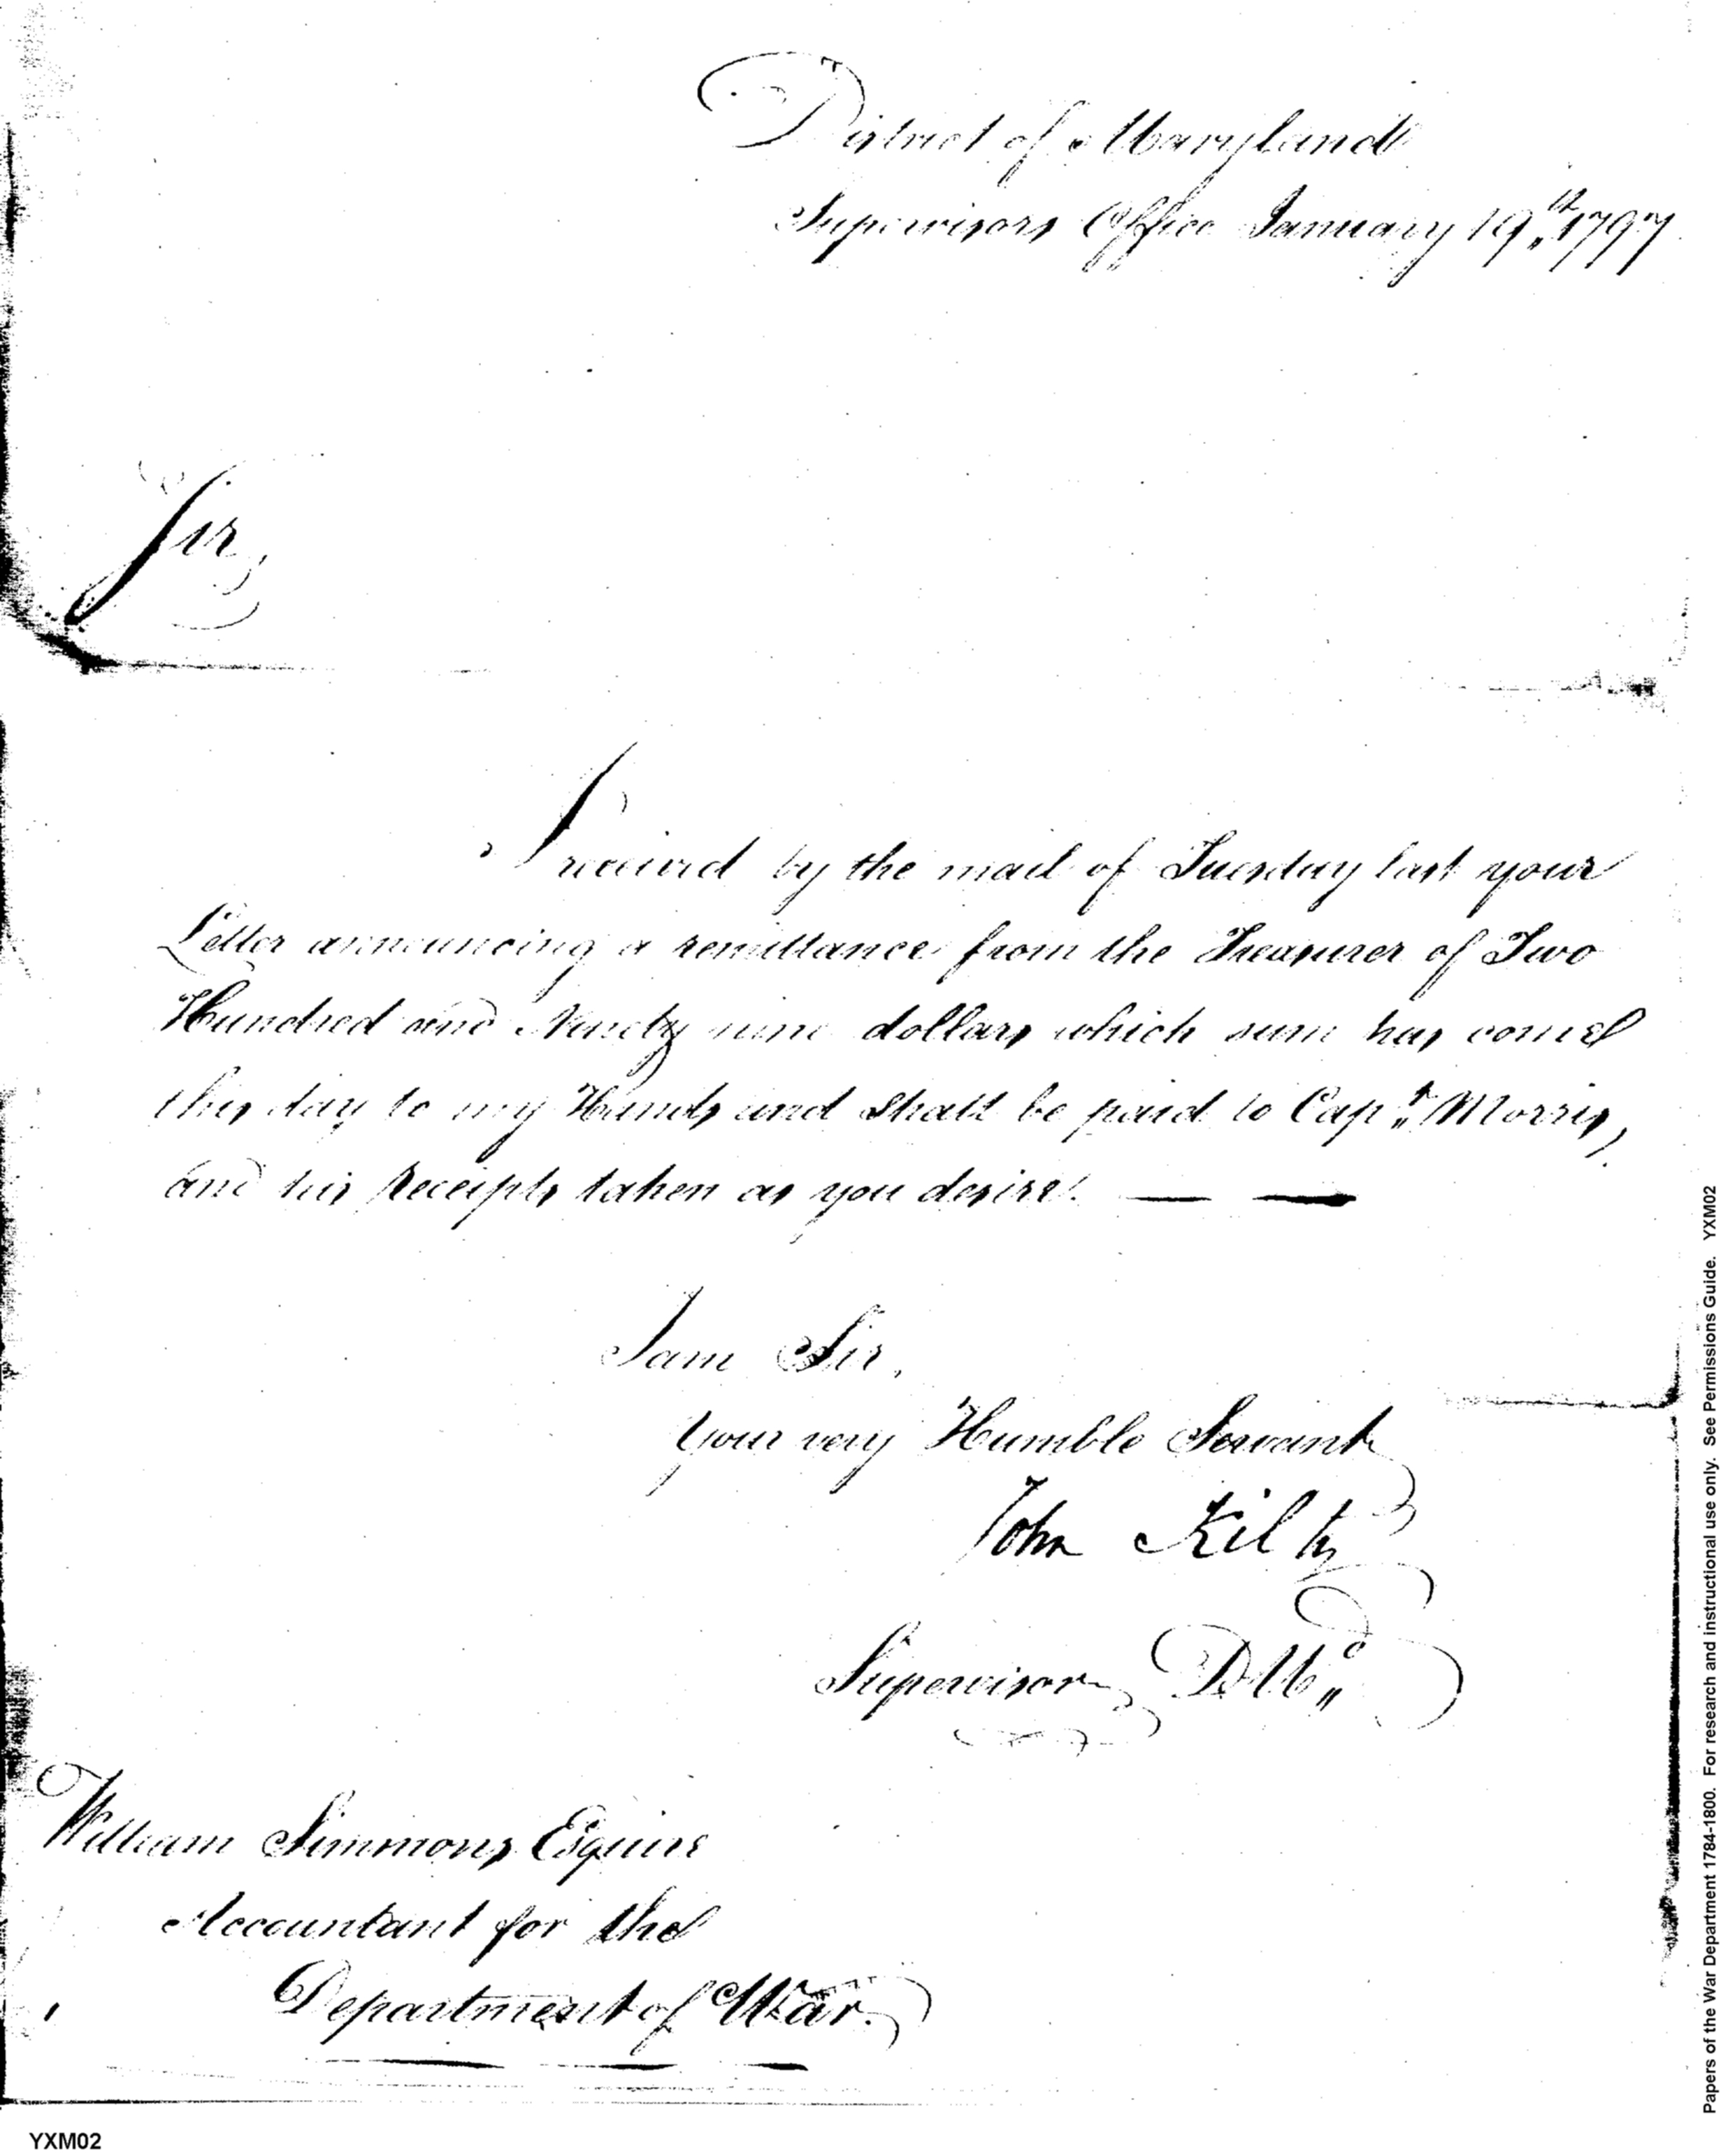 District of Maryland
Supervisors Office January 19th 1797
Sir,
I received by the mail of Tuesday last your
Letter announcing a remittance from the Treasurer of Two
Hundred and Ninety nine dollars which sum has come
this day to my Hands and shall be paid to Capt Morris,
and his Receipts taken as you desire. — —
I am Sir,
Your very Humble Servant
John Kilty
Supervisor DMo
William Simmons Esquire
Accountant for the
Department of War.
Papers of the War Department 1784-1800. For research and instructional use only. See Permissions Guide. YXM02
YXM02